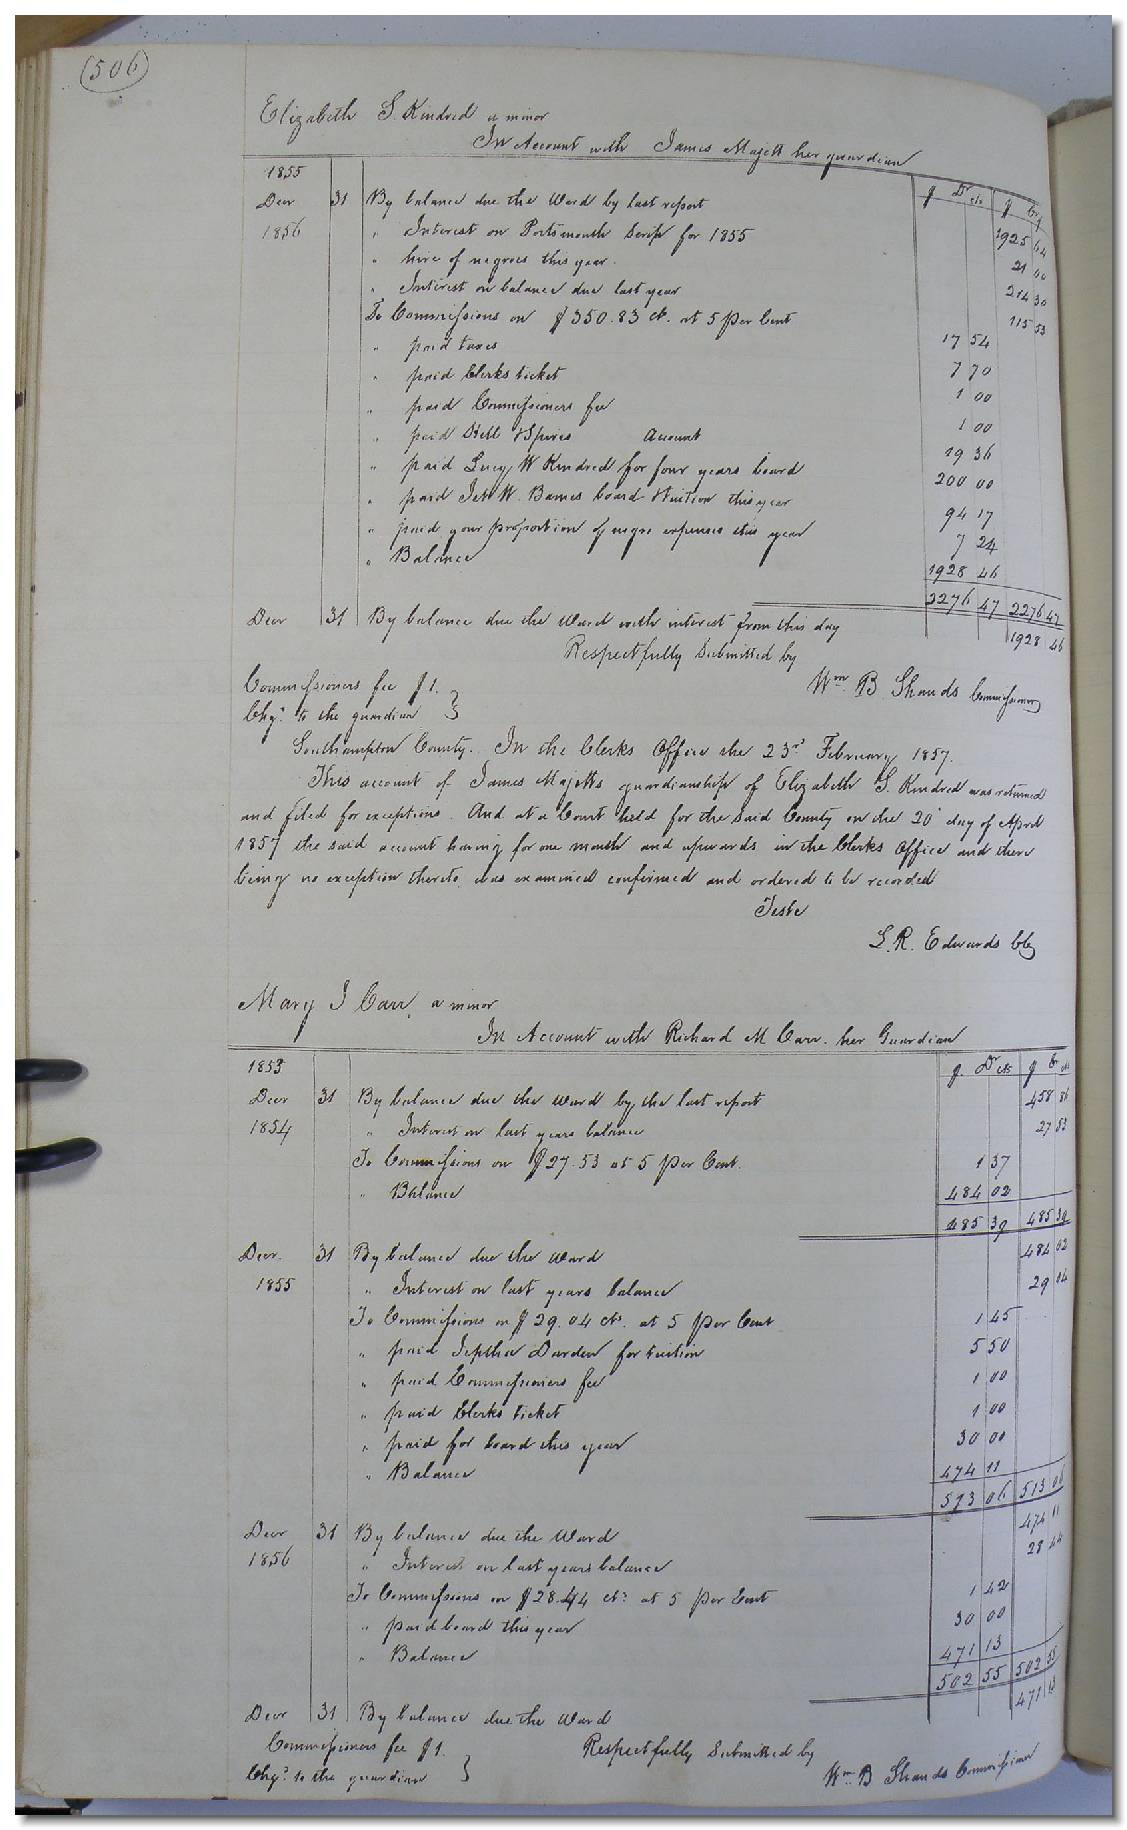 (506)
Elizabeth S. Kindred a minor
In Account with James Majett her guardian
1855 $ Dr cts $ Cr
Decr 31 By balance due the Ward by last report 1925 64
1856 " Interest on Portsmouth Scrip for 1855 21 00
" hire of negroes this year 214 30
" Interest on balance due last year 115 53
To Commissions on $350.83 cts. at 5 Per Cent 17 54
" paid taxes 7 70
" paid Clerks ticket 1 00
" paid Commissioners fee 1 00
" paid & Spivey Account 19 36
" paid Lucy W Kindred for four years board 200 00
" paid W. Barnes board & tuition this year 94 17
" paid your proportion of negro expenses this year 7 24
" Balance 1928 46
2276 47 2276 47
Decr 31 By balance due the Ward with interest from this day 1928 46
Respectfully Submitted by
Commissioners fee $1. Wm. B Shands Commissioner
Chgd. to the guardian
Southampton County. In the Clerks Office the 23rd February 1857.
This account of James Majetts guardianship of Elizabeth S. Kindred was returned
and filed for exceptions. And at a Court held for the said County on the 20th day of April
1857 the said account having for one month and upwards in the Clerks Office and there
being no exception thereto was examined confirmed and ordered to be recorded
Teste
L. R. Edwards Clk
Mary J Carr, a minor
In Account with Richard M Carr. her Guardian
1853 $. Dr cts $ Cr cts
Decr 31 By balance due the Ward by the last report 458 86
1854 " Interest on last years balance 27 53
To Commissions on $27.53 at 5 Per Cent. 1 37
" Balance 484 02
485 39 485 39
Decr. 31 By balance due the Ward 484 02
1855 " Interest on last years balance 29 04
To Commissions on $29.04 cts. at 5 Per Cent 1 45
" paid Jeptha Darden for tuition 5 50
" paid Commissioners fee 1 00
" paid Clerks ticket 1 00
" paid for board this year 30 00
" Balance 474 11
513 06 513 06
Decr 31 By balance due the Ward 474 11
1856 " Interest on last years balance 28 44
To Commissions on $28.44 cts. at 5 Per Cent 1 42
" paid board this year 30 00
" Balance 471 13
502 55 502 55
Decr 31 By balance due the Ward 471 13
Commissioners fee $1. Respectfully Submitted by
Chgd. to the guardian Wm. B Shands Commissioner